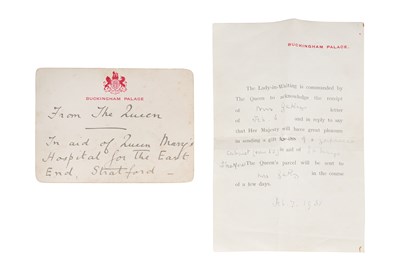 BUCKINGHAM PALACE
From The Queen
In aid of Queen Mary's
Hospital for the East
End, Stratford —
BUCKINGHAM PALACE.
The Lady-in-Waiting is commanded by
The Queen to acknowledge the receipt
of letter
of and in reply to say
that Her Majesty will have great pleasure
in sending a gift
in aid of
The Queen's parcel will be sent to
in the course
of a few days.